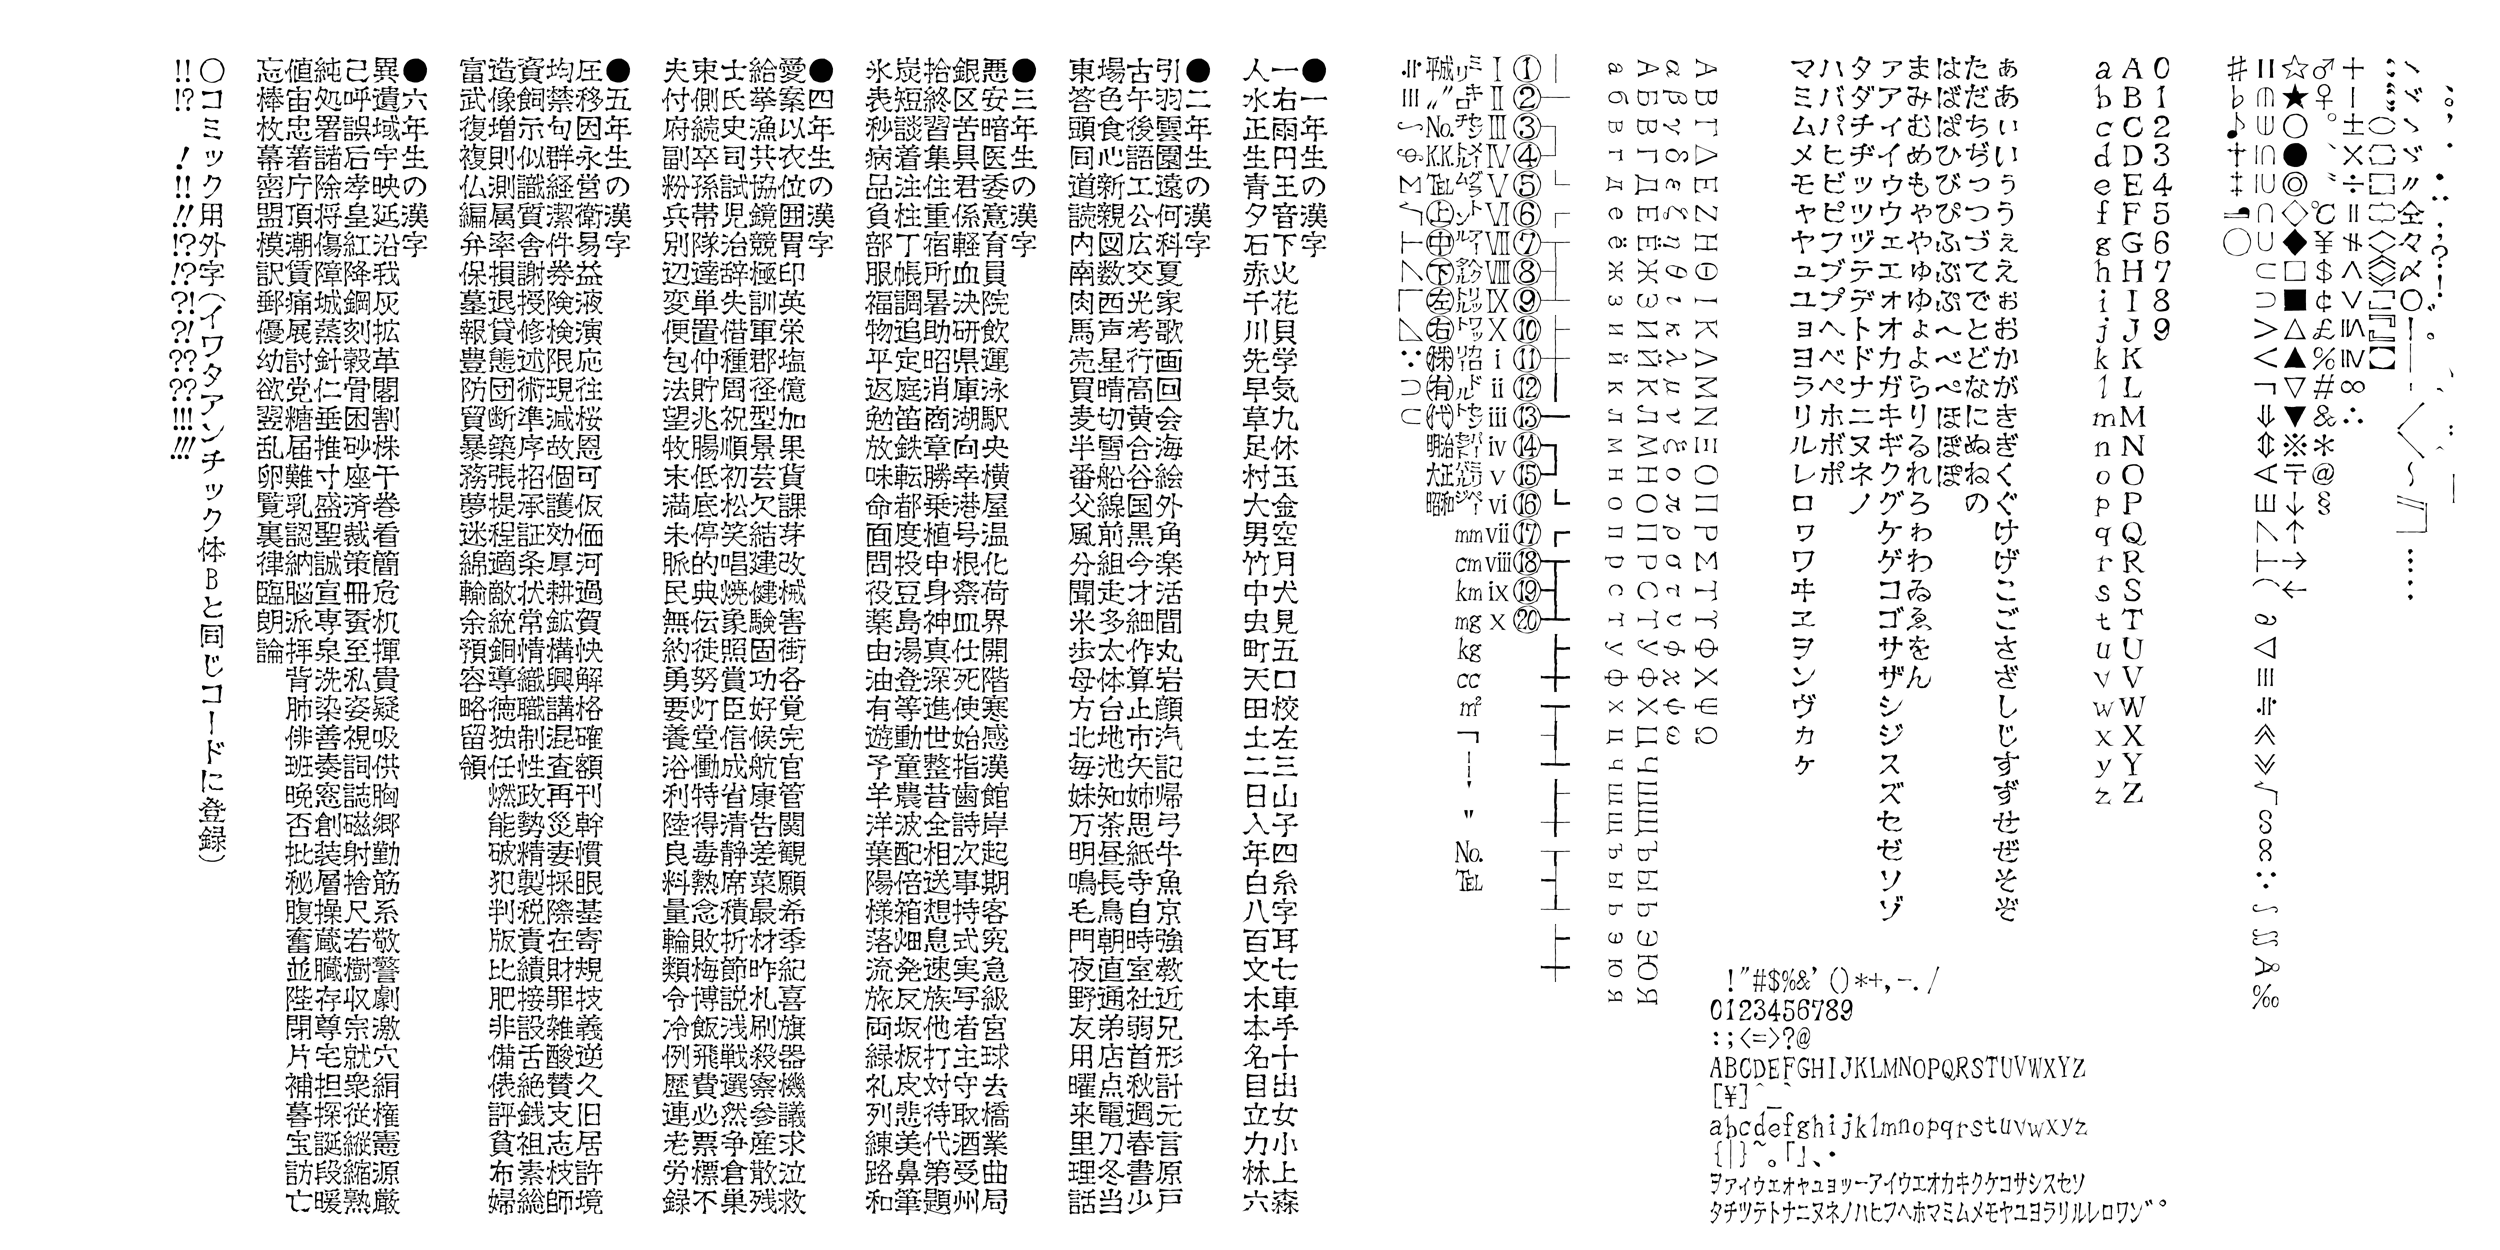 、。，．・：；？！゛゜´｀¨＾￣＿
ヽヾゝゞ〃仝々〆〇ー―‐／＼～∥｜…‥
‘’“”（）〔〕［］｛｝〈〉《》「」『』【】
＋－±×÷＝≠＜＞≦≧∞∴
♂♀°′″℃￥＄￠￡％＃＆＊＠§
☆★○●◎◇◆□■△▲▽▼※〒→←↑↓
∈∋⊆⊇⊂⊃∪∩∧∨¬⇒⇔∀∃∠⊥⌒∂∇≡≒≪≫√∽∝∵∫∬Å‰
♯♭♪†‡¶◯
0123456789
ABCDEFGHIJKLMNOPQRSTUVWXYZ
abcdefghijklmnopqrstuvwxyz
ぁあぃいぅうぇえぉおかがきぎくぐけげこごさざしじすずせぜそぞ
ただちぢっつづてでとどなにぬねの
はばぱひびぴふぶぷへべぺほぼぽ
まみむめもゃやゅゆょよらりるれろゎわゐゑをん
ァアィイゥウェエォオカガキギクグケゲコゴサザシジスズセゼソゾ
タダチヂッツヅテデトドナニヌネノ
ハバパヒビピフブプヘベペホボポ
マミムメモャヤュユョヨラリルレロヮワヰヱヲンヴヵヶ
ΑΒΓΔΕΖΗΘΙΚΛΜΝΞΟΠΡΣΤΥΦΧΨΩ
αβγδεζηθικλμνξοπρστυφχψω
АБВГДЕЁЖЗИЙКЛМНОПРСТУФХЦЧШЩЪЫЬЭЮЯ
абвгдеёжзийклмнопрстуфхцчшщъыьэюя
─│┌┐┘└├┬┤┴┼━┃┏┓┛┗┣┳┫┻╋┠┯┨┷┿┝┰┥┸╂
①②③④⑤⑥⑦⑧⑨⑩⑪⑫⑬⑭⑮⑯⑰⑱⑲⑳
ⅠⅡⅢⅣⅤⅥⅦⅧⅨⅩⅰⅱⅲⅳⅴⅵⅶⅷⅸⅹ
㍉㌔㌢㍍㌘㌧㌃㌶㍑㍗㌍㌦㌣㌫㍊㌻㎜㎝㎞㎎㎏㏄㎡￢￤＇＂№℡
㍻〝〟№㏍℡㊤㊥㊦㊧㊨㈱㈲㈹㍾㍽㍼
≒≡∫∮∑√⊥∠∟⊿∵∩∪
!"#$%&'()*+,-./
0123456789
:;<=>?@
ABCDEFGHIJKLMNOPQRSTUVWXYZ
[¥]^_`
abcdefghijklmnopqrstuvwxyz
{|}~｡｢｣､･
ｦｧｨｩｪｫｬｭｮｯｰｱｲｳｴｵｶｷｸｹｺｻｼｽｾｿ
ﾀﾁﾂﾃﾄﾅﾆﾇﾈﾉﾊﾋﾌﾍﾎﾏﾐﾑﾒﾓﾔﾕﾖﾗﾘﾙﾚﾛﾜﾝﾞﾟ
●一年生の漢字
一右雨円王音下火花貝学気九休玉金空月犬見五口校左三山子四糸字耳七車手十出女小上森
人水正生青夕石赤千川先早草足村大男竹中虫町天田土二日入年白八百文木本名目立力林六
●二年生の漢字
引羽雲園遠何科夏家歌画回会海絵外角楽活間丸岩顔汽記帰弓牛魚京強教近兄形計元言原戸
古午後語工公広交光考行高黄合谷国黒今才細作算止市矢姉思紙寺自時室社弱首秋週春書少
場色食心新親図数西声星晴切雪船線前組走多太体台地池知茶昼長鳥朝直通弟店点電刀冬当
東答頭同道読内南肉馬売買麦半番父風分聞米歩母方北毎妹万明鳴毛門夜野友用曜来里理話
●三年生の漢字
悪安暗医委意育員院飲運泳駅央横屋温化荷界開階寒感漢館岸起期客究急級宮球去橋業曲局
銀区苦具君係軽血決研県庫湖向幸港号根祭皿仕死使始指歯詩次事持式実写者主守取酒受州
拾終習集住重宿所暑助昭消商章勝乗植申身神真深進世整昔全相送想息速族他打対待代第題
炭短談着注柱丁帳調追定庭笛鉄転都度投豆島湯登等動童農波配倍箱畑発反坂板皮悲美鼻筆
氷表秒病品負部服福物平返勉放味命面問役薬由油有遊予羊洋葉陽様落流旅両緑礼列練路和
●四年生の漢字
愛案以衣位囲胃印英栄塩億加果貨課芽改械害街各覚完官管関観願希季紀喜旗器機議求泣救
給挙漁共協鏡競極訓軍郡径型景芸欠結建健験固功好候航康告差菜最材昨札刷殺察参産散残
士氏史司試児治辞失借種周祝順初松笑唱焼象照賞臣信成省清静席積折節説浅戦選然争倉巣
束側続卒孫帯隊達単置仲貯兆腸低底停的典伝徒努灯堂働特得毒熱念敗梅博飯飛費必票標不
夫付府副粉兵別辺変便包法望牧末満未脈民無約勇要養浴利陸良料量輪類令冷例歴連老労録
●五年生の漢字
圧移因永営衛易益液演応往桜恩可仮価河過賀快解格確額刊幹慣眼基寄規技義逆久旧居許境
均禁句群経潔件券険検限現減故個護効厚耕鉱構興講混査再災妻採際在財罪雑酸賛支志枝師
資飼示似識質舎謝授修述術準序招承証条状常情織職制性政勢精製税責績接設舌絶銭祖素総
造像増則測属率損退貸態団断築張提程適敵統銅導徳独任燃能破犯判版比肥非備俵評貧布婦
富武復複仏編弁保墓報豊防貿暴務夢迷綿輸余預容略留領
●六年生の漢字
異遺域宇映延沿我灰拡革閣割株干巻看簡危机揮貴疑吸供胸郷勤筋系敬警劇激穴絹権憲源厳
己呼誤后孝皇紅降鋼刻穀骨困砂座済裁策冊蚕至私姿視詞誌磁射捨尺若樹収宗就衆従縦縮熟
純処署諸除将傷障城蒸針仁垂推寸盛聖誠宣専泉洗染善奏窓創装層操蔵臓存尊宅担探誕段暖
値宙忠著庁頂潮賃痛展討党糖届難乳認納脳派拝背肺俳班晩否批秘腹奮並陛閉片補暮宝訪亡
忘棒枚幕密盟模訳郵優幼欲翌乱卵覧裏律臨朗論
○コミック用外字（イワタアンチック体Ｂと同じコードに登録）
!! !? ! !! !! !? !? ?! ?! ?? ?? !!! !!!